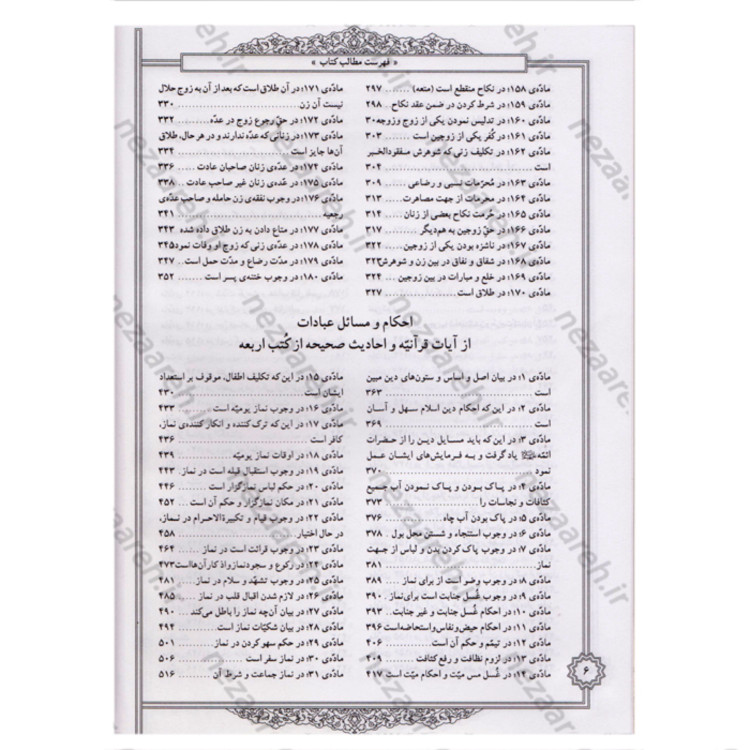 « فهرست مطالب کتاب »
ماده‌ی ۱۵۸: در نکاح منقطع است (متعه) ..... ۲۹۷
ماده‌ی ۱۵۹: در شرط کردن در ضمن عقد نکاح ۲۹۸
ماده‌ی ۱۶۰: در تدلیس نمودن یکی از زوج و زوجه۳۰
ماده‌ی ۱۶۱: در کُفر یکی از زوجین است ...... ۳۰۳
ماده‌ی ۱۶۲: در تکلیف زنی که شوهرش مفقودالخبر
است ...... ۳۰۴
ماده‌ی ۱۶۳: در مُحرّمات نسبی و رضاعی ...... ۳۰۹
ماده‌ی ۱۶۴: در محرمات از جهت مصاهرت ... ۳۱۳
ماده‌ی ۱۶۵: در حُرمت نکاح بعضی از زنان .... ۳۱۴
ماده‌ی ۱۶۶: در حقّ زوجین به هم‌دیگر ...... ۳۱۷
ماده‌ی ۱۶۷: در ناشزه بودن یکی از زوجین ..... ۳۲۲
ماده‌ی ۱۶۸: در شقاق و نفاق در بین زن و شوهرش۳۲۳
ماده‌ی ۱۶۹: در خلع و مبارات در بین زوجین .... ۳۲۴
ماده‌ی ۱۷۰: در طلاق است ...... ۳۲۷
ماده‌ی ۱۷۱: در آن طلاق است که بعد از آن به زوج حلال
نیست آن زن ...... ۳۳۰
ماده‌ی ۱۷۲: در حقّ رجوع زوج در عدّه ....... ۳۳۲
ماده‌ی ۱۷۳: در زنانی که عدّه ندارند و در هر حال، طلاق
آن‌ها جایز است ...... ۳۳۴
ماده‌ی ۱۷۴: در عدّه‌ی زنان صاحبان عادت .... ۳۳۶
ماده‌ی ۱۷۵: در عدّه‌ی زنان غیر صاحب عادت ... ۳۳۸
ماده‌ی ۱۷۶: در وجوب نفقه‌ی زن حامله و صاحب عدّه‌ی
رجعیه ...... ۳۴۱
ماده‌ی ۱۷۷: در متاع دادن به زن طلاق داده شده ۳۴۳
ماده‌ی ۱۷۸: در عدّه‌ی زنی که زوج او وفات نمود۳۴۵
ماده‌ی ۱۷۹: در مدّت رضاع و مدّت حمل است .. ۳۴۷
ماده‌ی ۱۸۰: در وجوب ختنه‌ی پسر است ....... ۳۵۲
احکام و مسائل عبادات
از آیات قرآنیّه و احادیث صحیحه از کُتب اربعه
ماده‌ی ۱: در بیان اصل و اساس و ستون‌های دین مبین
است ...... ۳۶۳
ماده‌ی ۲: در این‌که احکام دین اسلام سهل و آسان
است ...... ۳۶۹
ماده‌ی ۳: در این‌که باید مسایل دین را از حضرات
ائمّه یاد گرفت و به فرمایش‌های ایشان عمل
نمود ...... ۳۷۰
ماده‌ی ۴: در پاک بودن و پاک نمودن آب جمیع
کثافات و نجاسات را ...... ۳۷۳
ماده‌ی ۵: در پاک بودن آب چاه ...... ۳۷۶
ماده‌ی ۶: در وجوب استنجاء و شستن محل بول . ۳۷۸
ماده‌ی ۷: در وجوب پاک کردن بدن و لباس از جهت
نماز ...... ۳۸۱
ماده‌ی ۸: در وجوب وضو است از برای نماز .... ۳۸۹
ماده‌ی ۹: در وجوب غُسل جنابت است برای نماز . ۳۹۰
ماده‌ی ۱۰: در احکام غُسل جنابت و غیر جنابت .. ۳۹۳
ماده‌ی ۱۱: در احکام حیض و نفاس و استحاضه است ۳۹۶
ماده‌ی ۱۲: در تیمّم و حکم آن است ...... ۴۰۶
ماده‌ی ۱۳: در لزوم نظافت و رفع کثافت ...... ۴۰۹
ماده‌ی ۱۴: در غُسل مس میّت و احکام میّت است ۴۱۷
ماده‌ی ۱۵: در این‌که تکلیف اطفال، موقوف بر استعداد
ایشان است ...... ۴۳۰
ماده‌ی ۱۶: در وجوب نماز یومیّه است ...... ۴۳۳
ماده‌ی ۱۷: در این‌که ترک کننده و انکار کننده‌ی نماز،
کافر است ...... ۴۳۶
ماده‌ی ۱۸: در اوقات نماز یومیّه ...... ۴۳۹
ماده‌ی ۱۹: در وجوب استقبال قبله است در نماز . ۴۴۳
ماده‌ی ۲۰: در حکم لباس نمازگزار است ...... ۴۴۶
ماده‌ی ۲۱: در مکان نمازگزار و حکم آن است ... ۴۵۲
ماده‌ی ۲۲: در وجوب قیام و تکبیرةالاحرام در نماز،
در حال اختیار ...... ۴۵۸
ماده‌ی ۲۳: در وجوب قرائت است در نماز ..... ۴۶۴
ماده‌ی ۲۴: در رکوع و سجود نماز و اذکار آن‌ها است۴۷۳
ماده‌ی ۲۵: در وجوب تشهّد و سلام در نماز ... ۴۸۱
ماده‌ی ۲۶: در لازم شدن اقبال قلب در نماز .... ۴۸۵
ماده‌ی ۲۷: در بیان آن‌چه نماز را باطل می‌کند .. ۴۹۰
ماده‌ی ۲۸: در بیان شکیّات نماز است ...... ۴۹۴
ماده‌ی ۲۹: در حکم سهو کردن در نماز ...... ۵۰۱
ماده‌ی ۳۰: در نماز سفر است ...... ۵۰۶
ماده‌ی ۳۱: در نماز جماعت و شرط آن ...... ۵۱۶
۶
nezaareh.ir